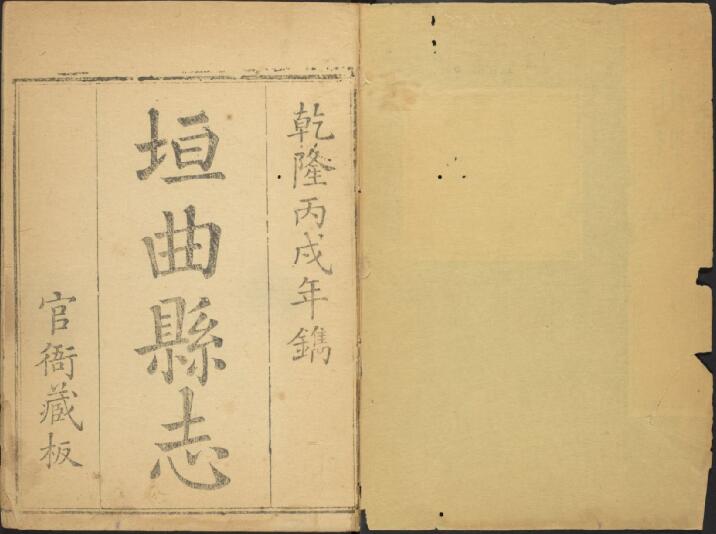 乾隆丙戌年鐫
垣曲縣志
官衙藏板